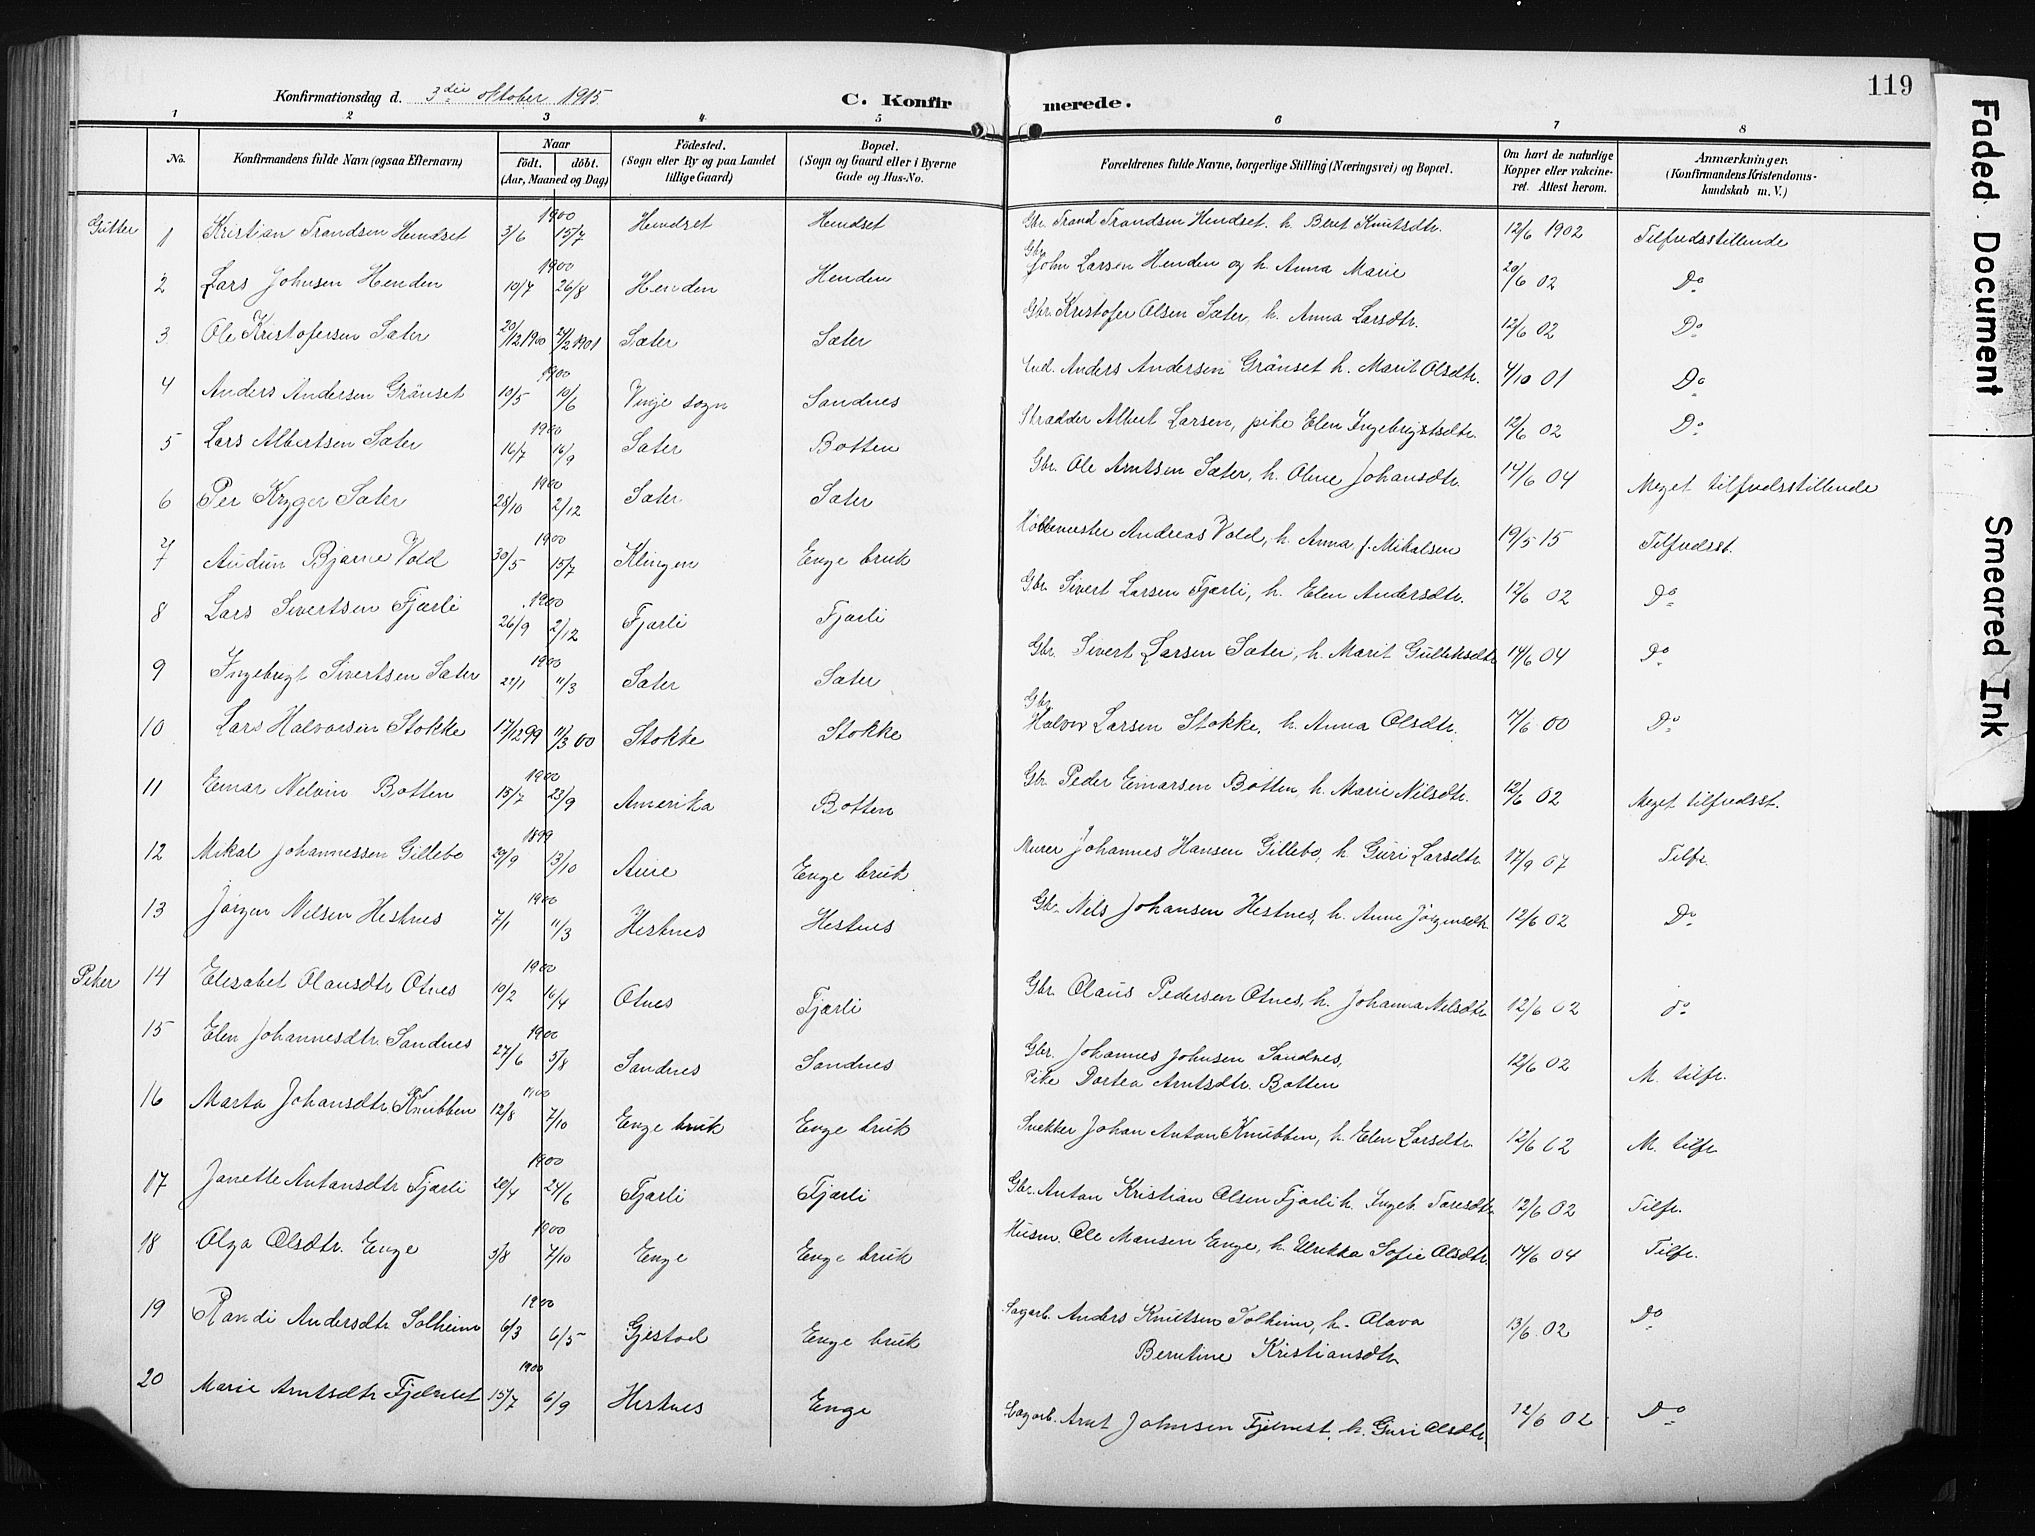 Konfirmationsdag d. 3die oktober 1915. C. Konfirmerede. 119
1 2 3 4 5 6 7 8
No. Konfirmandens fulde Navn (ogsaa Efternavn) Naar født. døbt. (Aar, Maaned og Dag) Fødested. (Sogn eller By og paa Landet tillige Gaard) Bopæl. (Sogn og Gaard eller i Byerne Gade og Hus-No. Forældrenes fulde Navne, borgerlige Stilling (Næringsvei) og Bopæl. Om havt de naturlige Kopper eller vakcineret. Attest herom. Anmærkninger. (Konfirmandens Kristendomskundskab m. V.)
Gutter 1 Kristian Trondsen Hendset 1900 3/6 15/7 Hendset Hendset Gbr. Trond Trondsen Hendset. h. Beret Knutsdtr. 12/6 1902 Tilfredsstillende
2 Lars Johnsen Henden 1900 10/7 26/8 Henden Henden Gbr. John Larsen Henden og h. Anna Marie 20/6 02 Do
3 Ole Kristofersen Sæter 20/12 1900 24/2 1901 Sæter Sæter Gbr. Kristofer Olsen Sæter, h. Anna Larsdtr. 12/6 02 Do
4 Anders Andersen Grönset 1900 10/5 10/6 Vinje sogn Sandnes Ind. Anders Andersen Grönset h. Marit Olsdtr. 4/10 01 Do
5 Lars Albertsen Sæter 1900 16/7 16/9 Sæter Botten Skrædder Albert Larsen, pike Elen Ingebrigtsdtr. 12/6 02 Do
6 Per Kryger Sæter 1900 28/10 2/12 Sæter Sæter Gbr. Ole Arntsen Sæter, h. Oline Johansdtr. 14/6 04 Meget tilfredsstillende
7 Audun Bjarne Vold 1900 30/5 15/7 Klingen Enge bruk Andreas Vold, h. Anna f. Mikalsen 19/5 15 Tilfredsst.
8 Lars Sivertsen Fjærli 1900 26/9 2/12 Fjærli Fjærli Gbr. Sivert Larsen Fjærli, h. Elen Andersdtr. 12/6 02 Do
9 Ingebrigt Sivertsen Sæter 1900 11/3 Sæter Sæter Gbr. Sivert Larsen Sæter, h. Marit Gulliksdtr 14/6 04 Do
10 Lars Halvorsen Stokke 17/12 99 11/3 00 Stokke Stokke Gbr. Halvor Larsen Stokke, h. Anna Olsdtr. 7/6 00 Do
11 Einar Nelvin Botten 1900 15/7 23/9 Amerika Botten Gbr. Peder Einarsen Botten, h. Marie Nilsdtr. 12/6 02 Meget tilfredsst.
12 Mikal Johannessen Gillebo 1899 13/10 Aure Enge bruk Murer Johannes Hansen Gillebo, h. Guri Larsdtr. 17/9 07 Tilfr.
13 Jörgen Nilsen Hestnes 1900 7/1 11/3 Hestnes Hestnes Gbr. Nils Johansen Hestnes, h. Anne Jörgensdtr. 12/6 02 Do
Piker 14 Elisabet Olausdtr Otnes 1900 10/2 16/4 Otnes Fjærli Gbr. Olaus Pedersen Otnes, h. Johanna Nilsdtr 12/6 02 do
15 Elen Johannesdtr. Sandnes 1900 27/6 5/8 Sandnes Sandnes Gbr. Johannes Johnsen Sandnes, 12/6 02 M. tilfr.
Pike Dortea Arntsdtr. Botten
16 Marta Johansdtr. Knubben 1900 12/8 7/10 Enge bruk Enge bruk Snekker Johan Anton Knubben, h. Elen Larsdtr. 12/6 02 M. tilfr.
17 Janette Antonsdtr Fjærli 1900 20/4 24/6 Fjærli Fjærli Gbr. Anton Kristian Olsen Fjærli h. Ingeb. Toresdtr 12/6 02 Tilfr.
18 Olga Olsdtr. Enge 1900 3/8 7/10 Enge Enge bruk Husm. Ole Monsen Enge, h. Ulrikka Sofie Olsdtr. 14/6 04 Tilfr.
19 Randi Andersdtr Solheim 1900 6/3 6/5 Gjestad Enge bruk Sagarb. Anders Knutsen Solheim, h. Olava 13/6 02 Do
Berntine Kristiansdtr
20 Marie Arntsdtr Fjelnset 1900 15/7 6/9 Hestnes Enge Sagarb. Arnt Johnsen Fjelnset, h. Guri Olsdtr. 12/6 02 Do
Faded Document
Smeared Ink